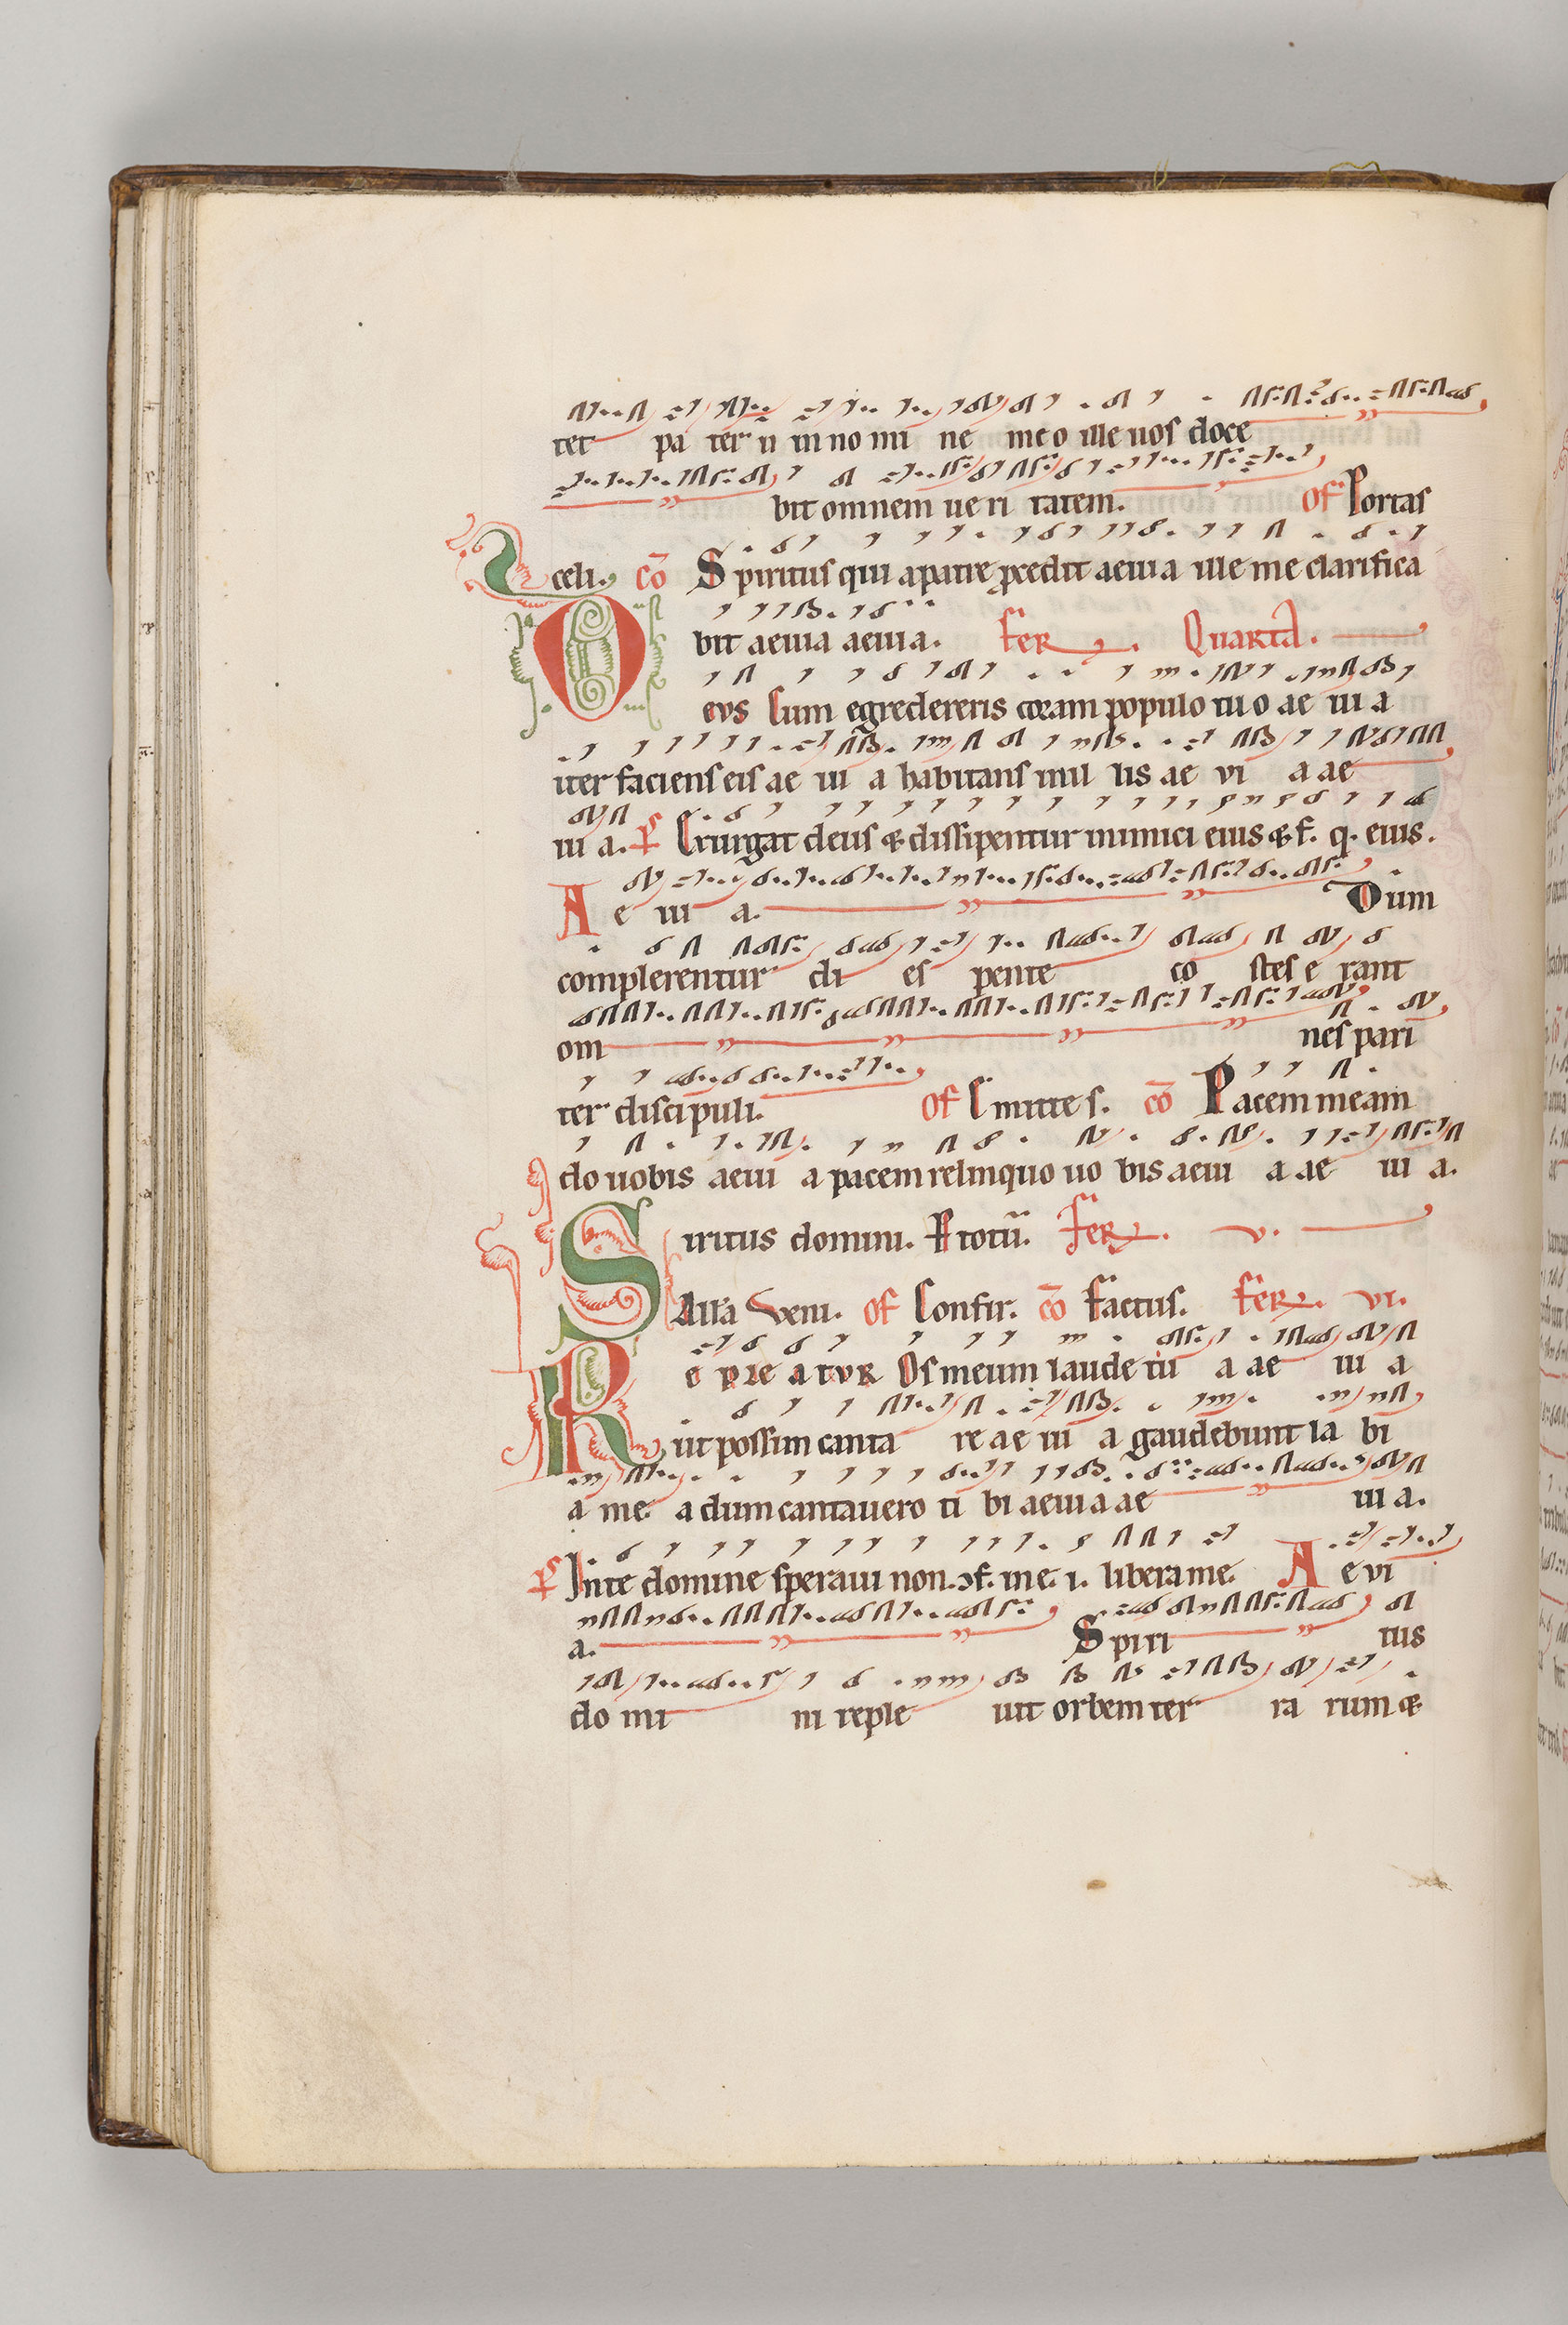 tet pa ter ii in no mi ne meo ille uos doce
bit omnem ue ri tatem. Of Portas
celi. cō Spiritus qui a patre ꝓcedit aeuia ille me clarifica
bit aeuia aeuia. Fer. Quarta.
Deus Cum egredereris coram populo tuo ae ui a
iter faciens eis ae ui a habitans inil lis ae vi a ae
ui a. Ps Exurgat deus & dissipentur inimici eius & f. q. eius.
A e ui a. Dum
complerentur di es pente co stes e rant
om nes pari
ter discipuli. Of Emitte s. cō Pacem meam
do uobis aeui a pacem relinquo uo bis aeui a ae ui a.
Spiritus domini. P totū. Fer. v.
Alla Veni. Of Confir. cō Factus. Fer. vi.
Repleatur Os meum laude tu a ae ui a
ut possim canta re ae ui a gaudebunt la bi
a me a dum cantauero ti bi aeuia ae ui a.
Ps In te domine speraui non. ↄf. me. i. libera me. A e vi
a. Spiri tus
do mi ni reple uit orbem ter ra rum &